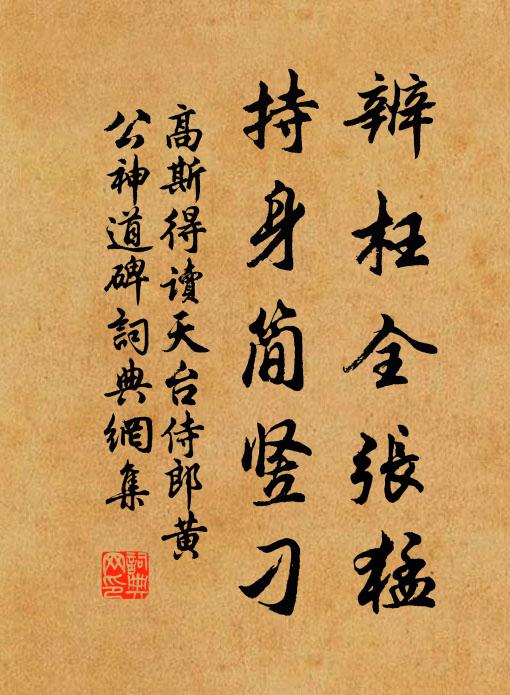 辨枉全張猛
持身简竖刁
高斯得读天台侍郎黄
公神道碑詞典網集
詞典网印